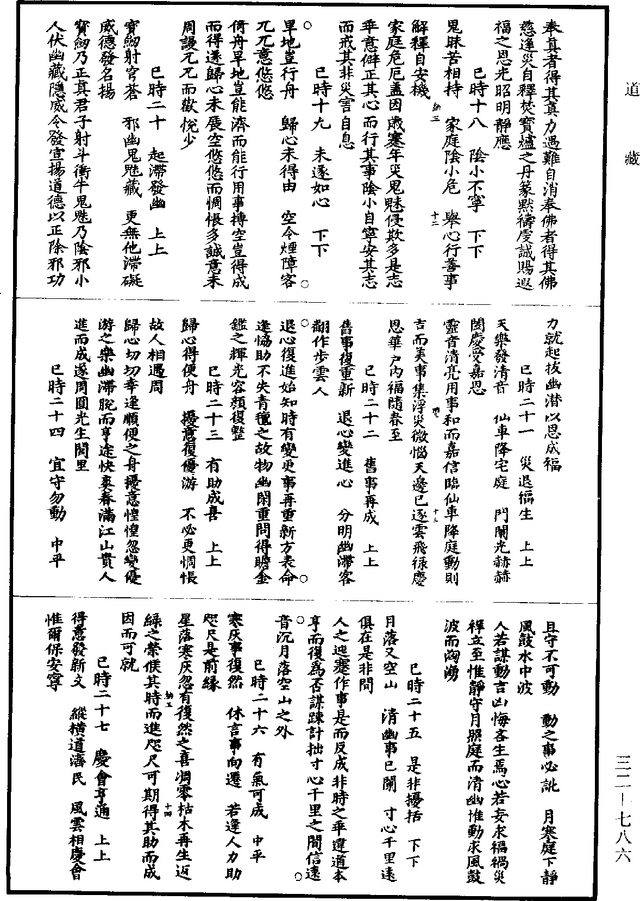 道藏
奉真者得其真力遇難自消奉佛者得其佛
慈逢災自釋焚寶爐之丹篆默禱虔誠賜遐
福之恩光昭明靜應
巳時十八　陰小不寧　下下
鬼昧苦相持　家庭陰小危　舉心行善事
解釋自安機
家庭危厄蓋因歲塞年災鬼魅侵欺多是志
乖意僻正其心而行其事陰小自寧安其志
而戒其非災害自息
巳時十九　未遂如心　下下
旱地豈行舟　歸心未得由　空令煙障客
兀兀意悠悠
倚舟旱地豈能濟而能行用事搏空豈得成
而得遂歸心未展空悠悠而惆悵多誠意未
周謾兀兀而歡悅少
巳時二十　起滯發幽　上上
寶劒射穹蒼　邪幽鬼魅藏　更無他滯礙
威德發名揚
寶劒乃正真君子射斗衝牛鬼魅乃陰邪小
人伏幽藏隱威令發宣揚道德以正除邪功
力就起拔幽潛以恩成福
巳時二十一　災退福生　上上
天樂發清音　仙車降宅庭　門闌光赫赫
閤慶受嘉恩
靈音清亮用事和而嘉信臨仙車降庭動則
吉而美事集浮災微惱天邊已逐雲飛祿慶
恩華戶內福隨春至
巳時二十二　舊事再成　上上
舊事復重新　退心變進心　分明幽滯客
翻作步雲人
退心復進始知時有變更事再重新方表命
逢恊助不失青氊之故物幽閑重問得瞻金
鑑之輝光容顔復整
巳時二十三　有助成喜　上上
歸心得便舟　擾意復優游　不必更惆悵
故人相遇周
歸心切切幸逢順便之舟擾意惶惶忽變優
游之樂幽滯脫而亨途快裹春滿江山貴人
進而成遂周圓光生閭里
巳時二十四　宜守勿動　中平
且守不可動　動之事必訛　月寒庭下靜
風鼓水中波
人若謀動言凶悔吝生焉心若妄求福禍災
釋立至惟靜守月照庭而清幽惟動求風鼓
波而洶湧
巳時二十五　是非擾括　下下
月落又空山　清幽事已闌　寸心千里遠
俱在是非間
人之迍蹇作事是而反成非時之乖違道本
亨而復為否謀踈計拙寸心千里之間信遠
音沉月落空山之外
巳時二十六　有氣可成　中平
寒灰事復然　休言事向遷　若逢人力助
咫尺是前緣
星落寒灰忽有復然之喜凋零枯木再生近
綠之榮俟其時而進咫尺可期得其助而成
因而可就
巳時二十七　慶會亨通　上上
得意發新文　縱橫道濟民　風雲相慶會
惟爾保安寧
三二—七八六